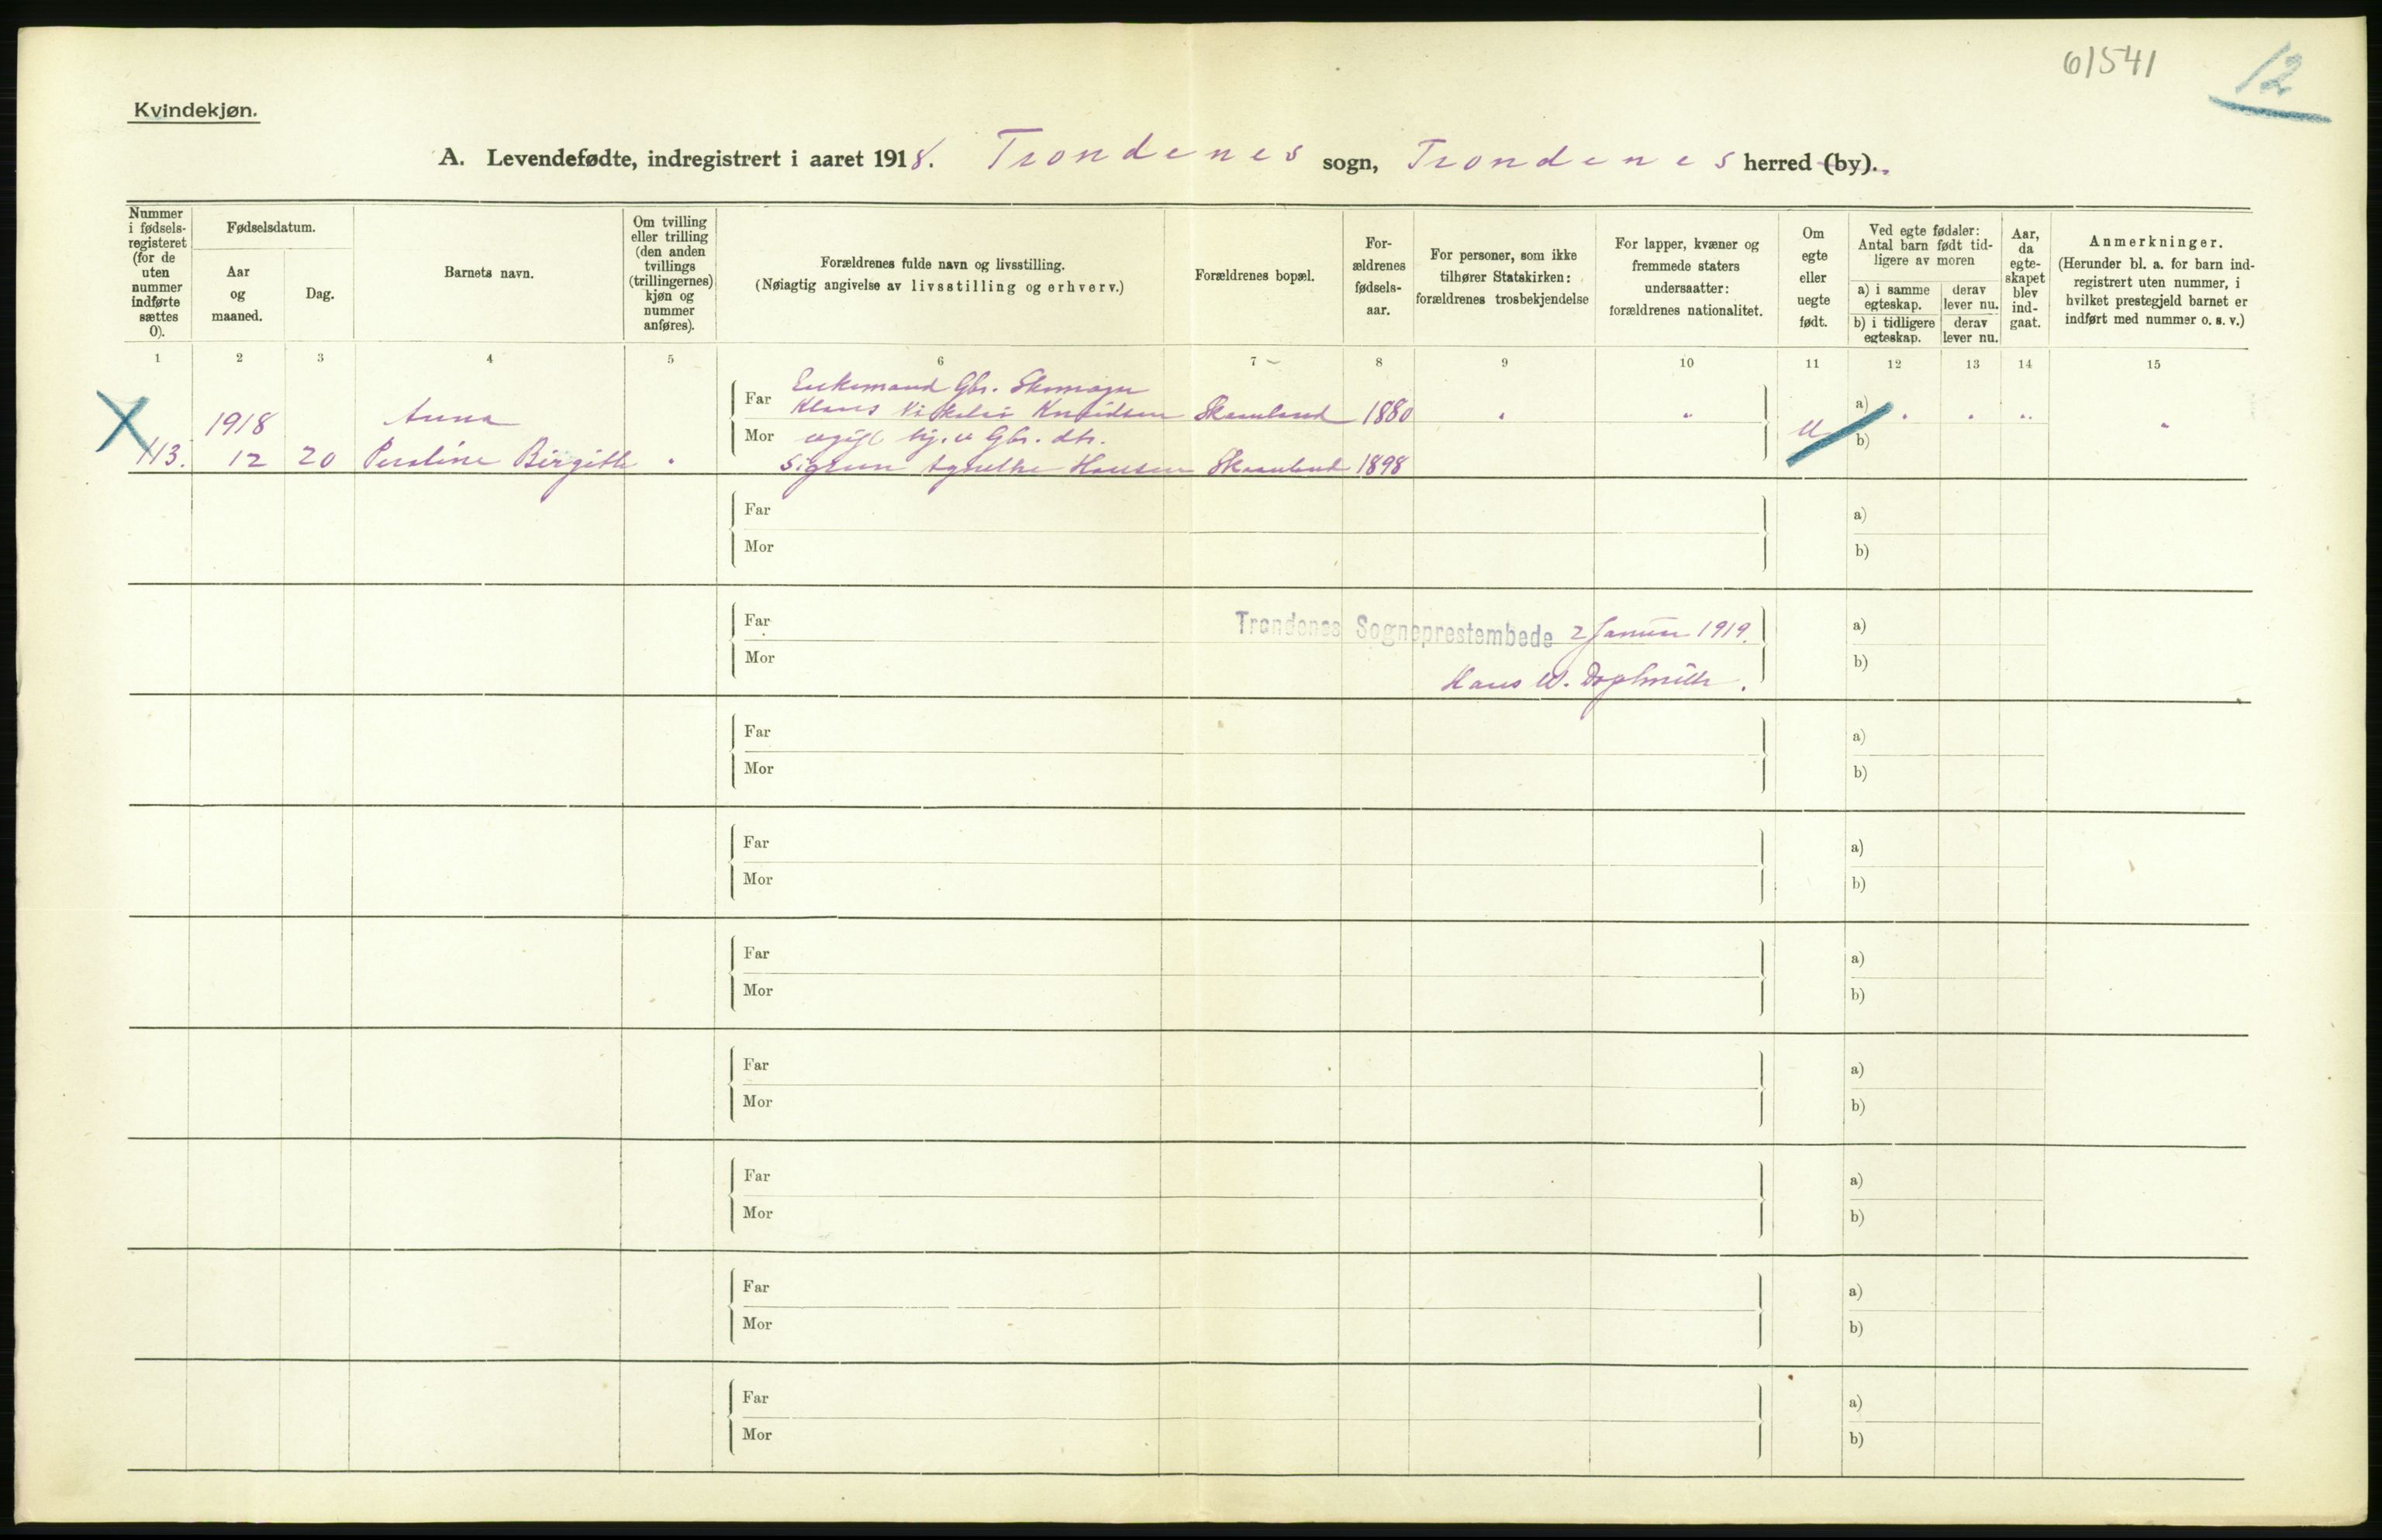 61541
12
Kvindekjøn.
A. Levendefødte, indregistrert i aaret 1918. Trondenes sogn, Trondenes herred (by).
Nummer i fødsels-registeret (for de uten nummer indførte sættes 0).
Fødselsdatum.
Aar og maaned.
Dag.
Barnets navn.
Om tvilling eller trilling (den anden tvillings (trillingernes) kjøn og nummer anføres).
Forældrenes fulde navn og livsstilling.
(Nøiagtig angivelse av livsstilling og erhverv.)
Forældrenes bopæl.
For-ældrenes fødsels-aar.
For personer, som ikke tilhører Statskirken: forældrenes trosbekjendelse
For lapper, kvæner og fremmede staters undersaatter: forældrenes nationalitet.
Om egte eller uegte født.
Ved egte fødsler: Antal barn født tid-ligere av moren
a) i samme egteskap.
derav lever nu.
b) i tidligere egteskap.
derav lever nu.
Aar, da egte-skapet blev ind-gaat.
Anmerkninger.
(Herunder bl. a. for barn ind-registrert uten nummer, i hvilket prestegjeld barnet er indført med nummer o. s. v.)
1 2 3 4 5 6 7 8 9 10 11 12 13 14 15
Enkemand Gbr. Skomager
Far Klaus Nikolai Knudsen Skaanland 1880
1918 Anna
Mor ugift hj. v Gbr. dtr.
113. 12 20 Peraline Birgitte Sigrun Agnethe Hansen Skaanland 1898
U
a)
b)
Far
Mor
a)
b)
Far
Trondenes Sogneprestembede 2 Januar 1919.
Mor
Hans W.
a)
b)
Far
Mor
a)
b)
Far
Mor
a)
b)
Far
Mor
a)
b)
Far
Mor
a)
b)
Far
Mor
a)
b)
Far
Mor
a)
b)
Far
Mor
a)
b)